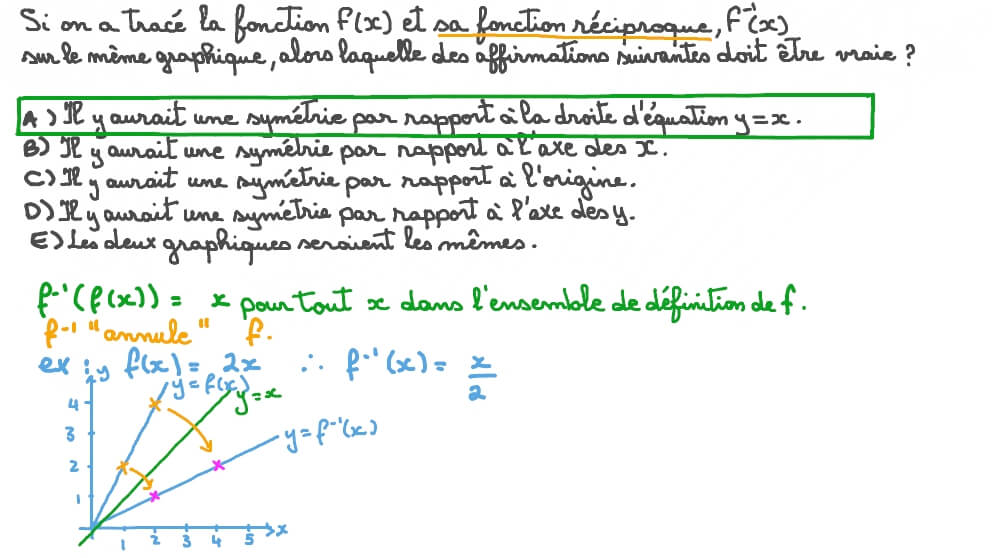 Si on a tracé la fonction f(x) et sa fonction réciproque, f⁻¹(x)
sur le même graphique, alors laquelle des affirmations suivantes doit être vraie ?
A) Il y aurait une symétrie par rapport à la droite d'équation y=x.
B) Il y aurait une symétrie par rapport à l'axe des x.
C) Il y aurait une symétrie par rapport à l'origine.
D) Il y aurait une symétrie par rapport à l'axe des y.
E) Les deux graphiques seraient les mêmes.
f⁻¹(f(x)) = x pour tout x dans l'ensemble de définition de f.
f⁻¹ "annule" f.
ex : f(x) = 2x ∴ f⁻¹(x) = x/2
y
y=f(x)
y=x
y=f⁻¹(x)
4
3
2
1
1 2 3 4 5 x